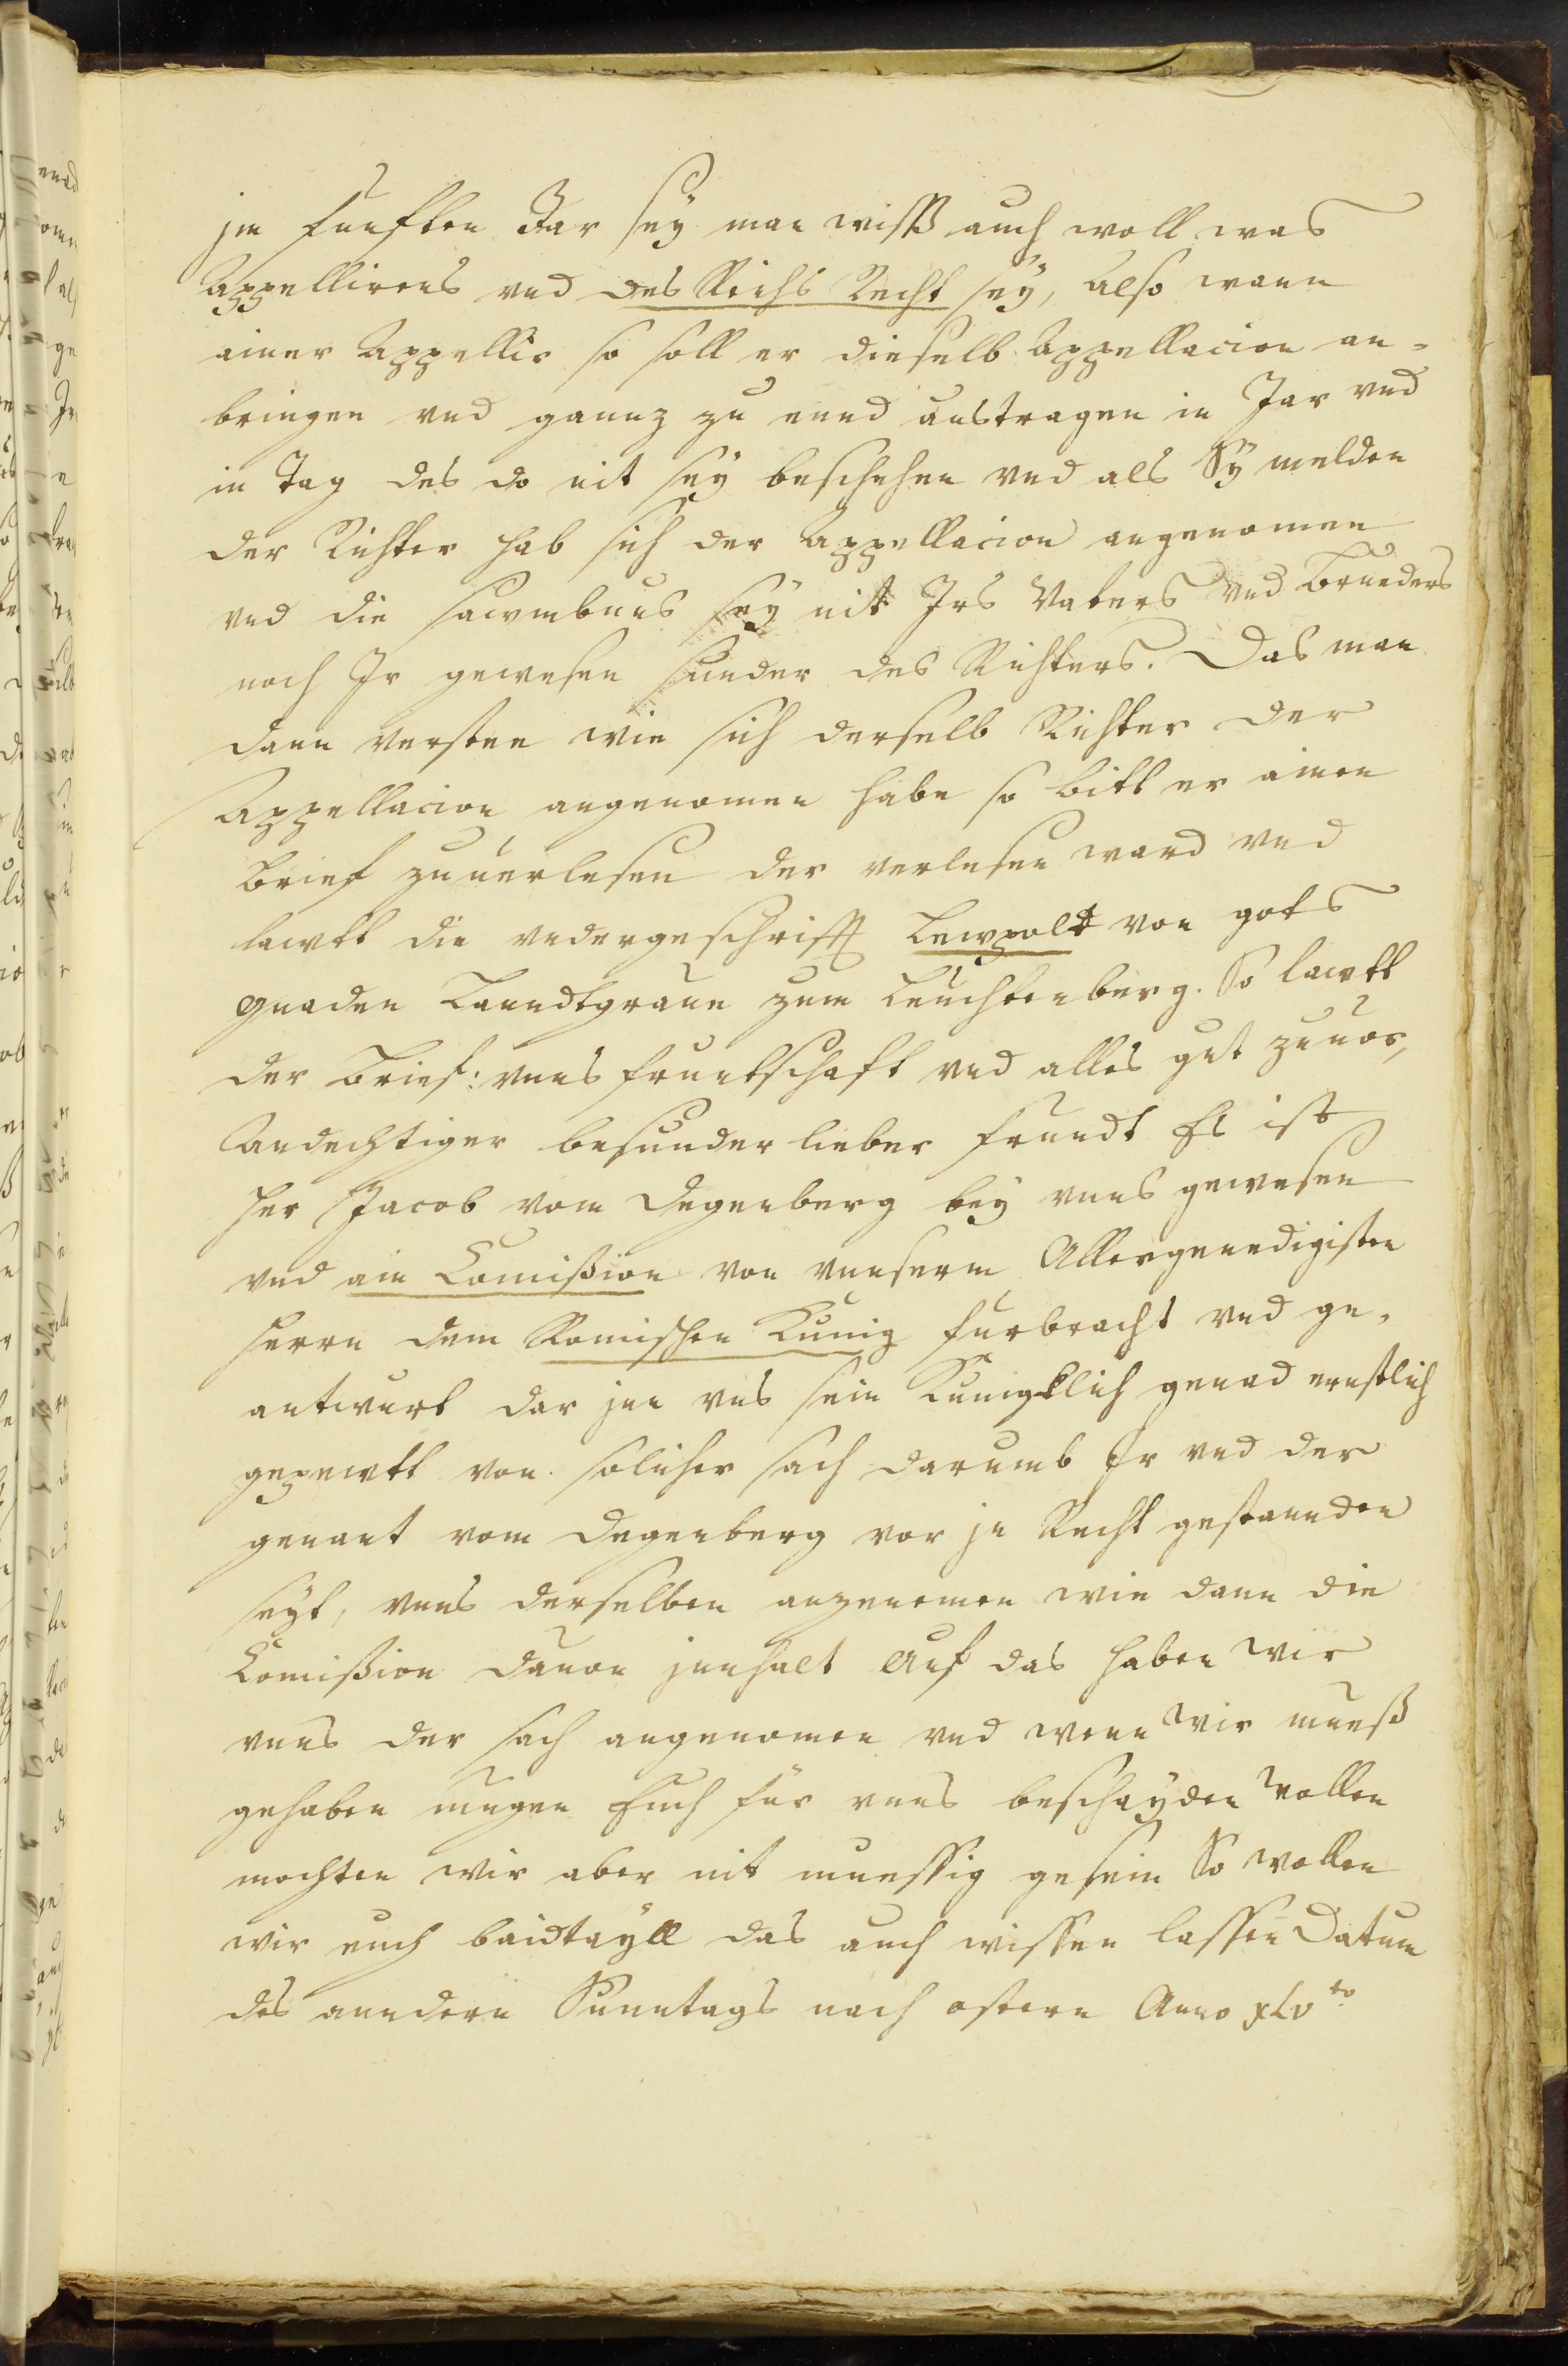 jm funften Jar sey man wiss auch woll was
Appellirens vnd des Reichs Recht sey, Also wann
ainer Appellir so soll er dieselb Appellacion an-
bringen vnd gannz zu ennd austragen in Jar vnd
in Tag des do nit sey beschehen vnd als Sy melden
der Richter hab sich der Appellacion angenomen
vnd die sawmbnus sey nit Irs Vaters vnd Brueders
noch Ir gewesen sunder des Richters. Das man
dann versten wie sich derselb Richter der
Appellacion angenomen habe so bitt er ainen
Brief zuuerlesen der verlesen ward vnd
lawtt die vndergeschrifft Lewpolt von gots
gnaden Lanndtgraue zum Leuchtenberg. So lawtt
der Brief: vnns fruntschaft vnd alles gut zuuor,
Andechtiger besunder lieber frundt Es ist
her Jacob vom Degenberg bey vnns gewesen
vnd ain Comißion von vnnserm Allergenedigisten
Herrn dem Romischen Kunig furbracht vnd ge-
antwurt dar jnn vns sein Kunigklich genad ernstlich
gepewtt von solicher sach darumb Ir vnd der
genant vom Degenberg vor jn Recht gestannden
seyt, vnns derselben anzenemen wie dann die
Comißion dauon jnnhalt Auf das haben wir
vnns der sach angenomen vnd wenn wir mueß
gehaben mugen Euch für vnns beschayden wollen
mochten wir aber nit muessig gesein So wollen
wir euch baidtayll das auch wissen lassen Datum
des anndern Sunntags nach ostern Anno xLv to